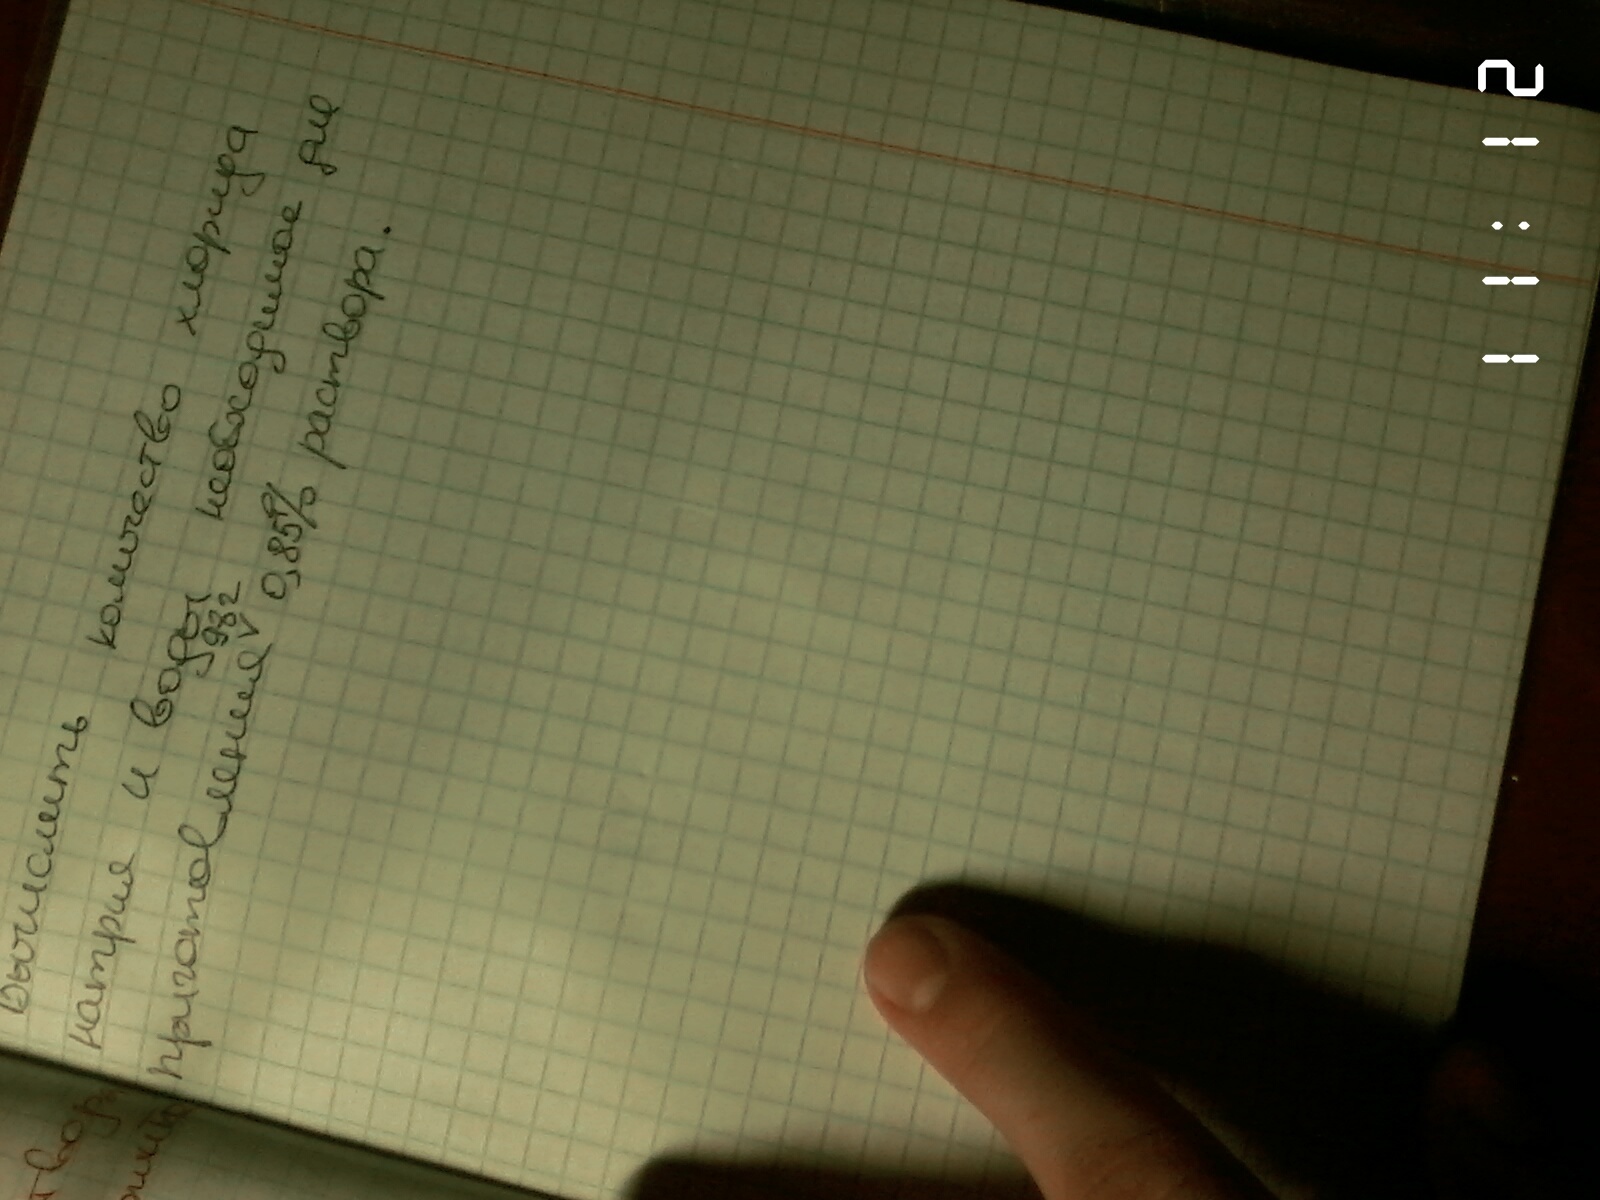 Вычислить количество хлорида
натрия и воды необходимое для
93г
приготовления V 0,85% раствора.
11:12